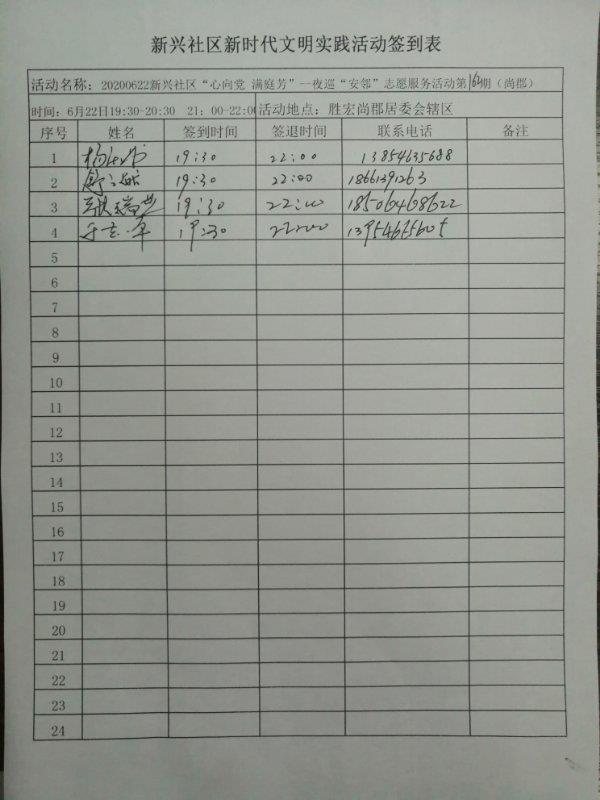 新兴社区新时代文明实践活动签到表
活动名称：20200622新兴社区“心向党 满庭芳”一夜巡“安邻”志愿服务活动第 期（尚郡）
时间：6月22日19:30-20:30 21：00-22:00 活动地点：胜宏尚郡居委会辖区
序号 姓名 签到时间 签退时间 联系电话 备注
1 19:30 22:00 13854635688
2 19:30 22:00 18661391263
3 张瑞芳 19:30 22:00 18506468622
4 19:30 22:00 13954655605
5
6
7
8
9
10
11
12
13
14
15
16
17
18
19
20
21
22
23
24